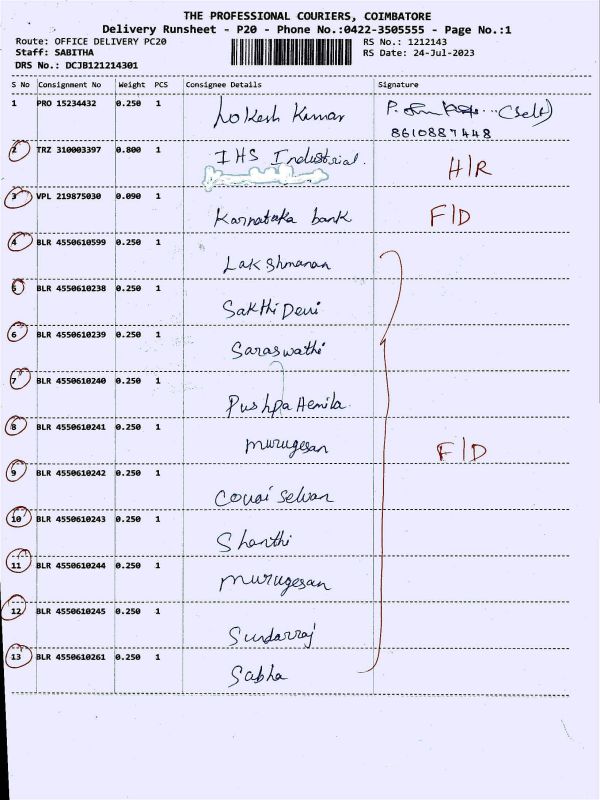 THE PROFESSIONAL COURIERS, COIMBATORE
Delivery Runsheet - P20 - Phone No.:0422-3505555 - Page No.:1
Route: OFFICE DELIVERY PC20
RS No.: 1212143
Staff: SABITHA
RS Date: 24-Jul-2023
DRS No.: DCJB121214301
S No Consignment No Weight PCS Consignee Details Signature
1 PRO 15234432 0.250 1 Lokesh Kumar (Self)
8610887448
2 TRZ 310003397 0.800 1 IHS Industrial. H/R
3 VPL 219875030 0.090 1 Karnataka bank F/D
4 BLR 4550610599 0.250 1 Lakshmanan
5 BLR 4550610238 0.250 1 Sakthi Devi
6 BLR 4550610239 0.250 1 Saraswathi
7 BLR 4550610240 0.250 1 Pushpa Hemila
8 BLR 4550610241 0.250 1 Murugesan F/D
9 BLR 4550610242 0.250 1 Covai Selvan
10 BLR 4550610243 0.250 1 Shanthi
11 BLR 4550610244 0.250 1 Murugesan
12 BLR 4550610245 0.250 1 Sundarraj
13 BLR 4550610261 0.250 1 Sabha